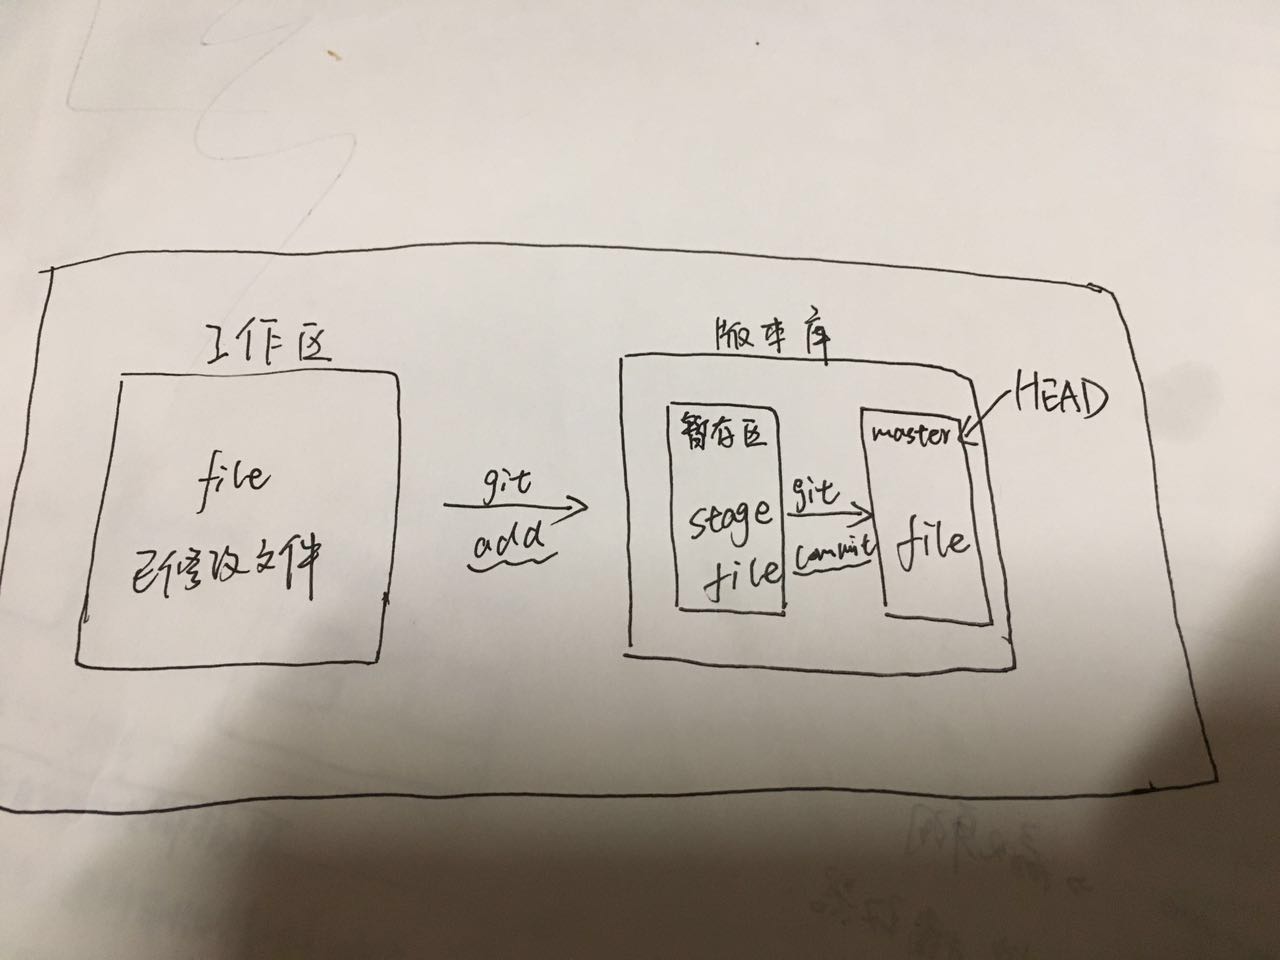 工作区
file
已修改文件
git
add
版本库
暂存区
stage
file
git
commit
master
file
HEAD